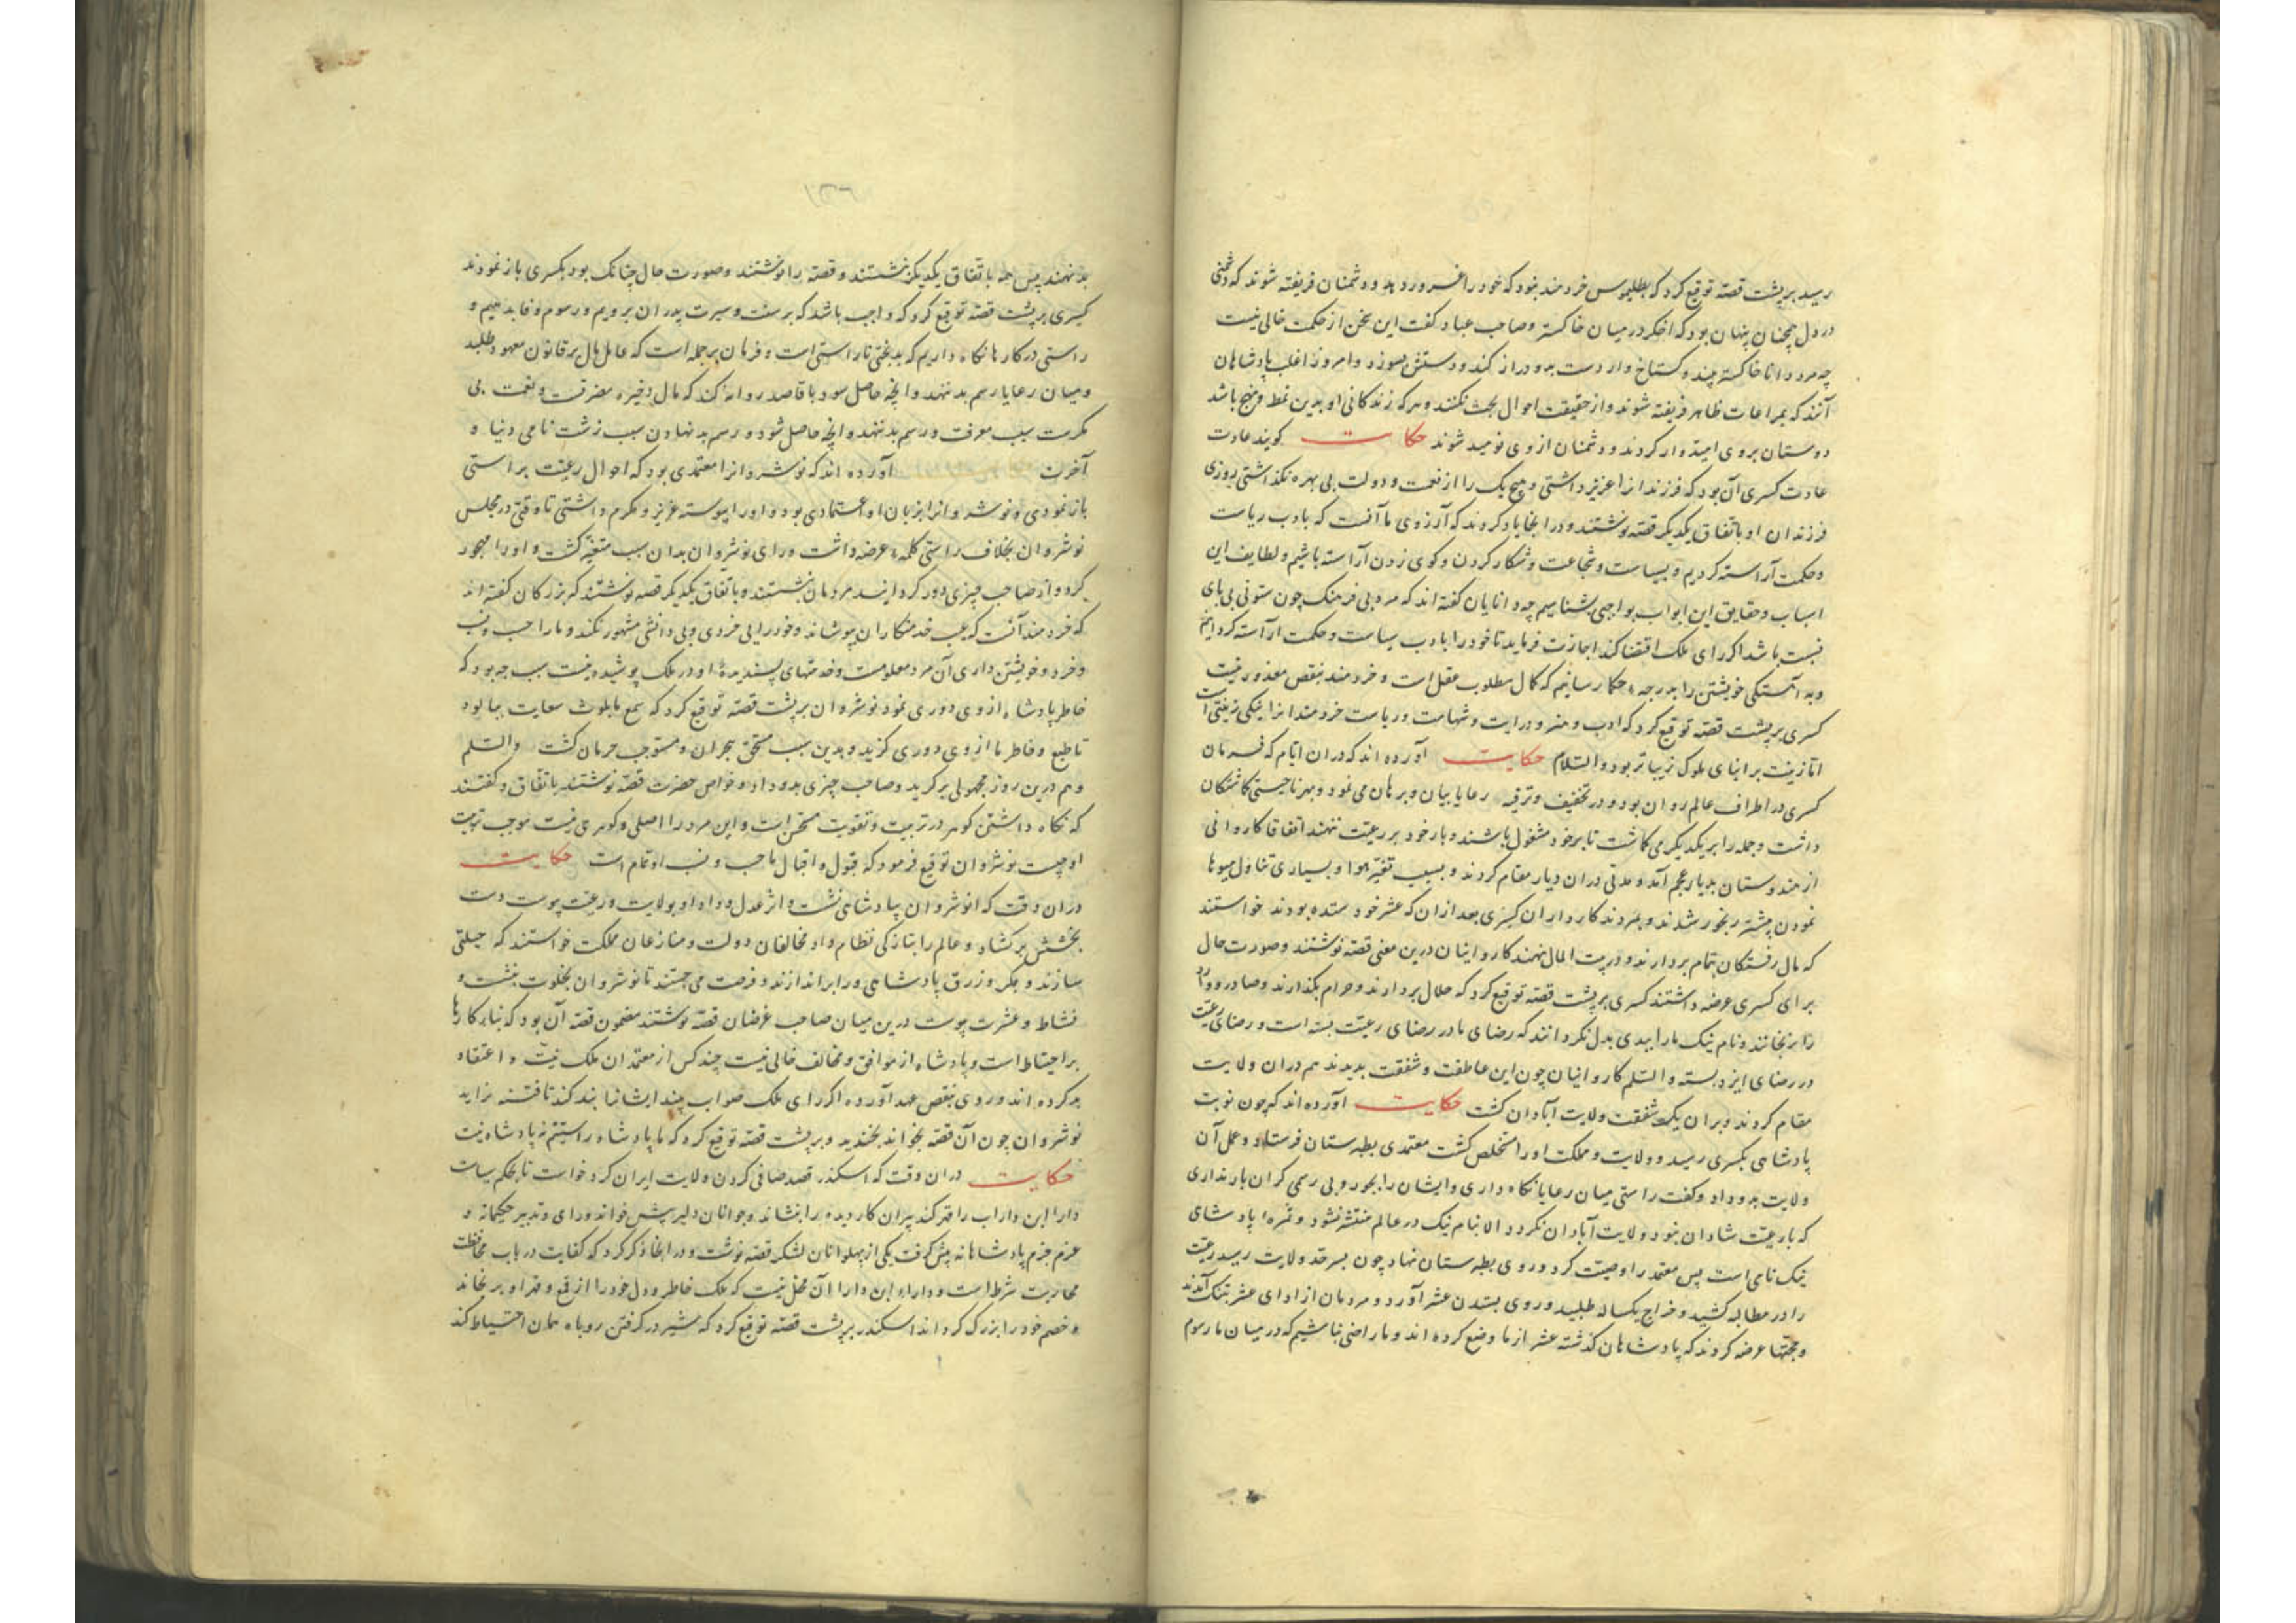 رسید بر پشت قصه توقیع کرد که بطلیموس خردمند نبود که خود را غرور دهد و دشمنان فریفته شوند که دشمنی
در دل همچنان پنهان بود که اخکر در میان خاکستر و صاحب عباد کفت این سخن از حکمت خالی نیست
چه مرد دانا خاکستر بیند و کستاخ وار دست بدو دراز کند و دستش بسوزد و امروز اغلب پادشاهان
آنند که بمراعات ظاهر فریفته شوند و از حقیقت احوال بحث نکنند و هر که زندکانی او بدین نمط و نهج باشد
دوستان بروی امیدوار کردند و دشمنان از وی نومید شوند حکایت کویند عادت
عادت کسری آن بود که فرزندانرا عزیز داشتی و هیچ یک را از نعمت و دولت بی بهره نکذاشتی روزی
فرزندان او باتفاق یکدیکر قصه نوشتند و در آنجا یاد کردند که آرزوی ما آنست که بادب ریاست
و حکمت آراسته کردیم و بسیاست و شجاعت و شکار کردن و کوی زدن آراسته باشیم و لطایف این
اسباب و حقایق این ابواب بواجبی بشناسیم چه دانایان کفته اند که مرد بی فرهنک چون ستونی بی پای
نسبت باشد اکر رای ملک اقتضا کند اجازت فرماید تا خود را بادب سیاست و حکمت آراسته کردانیم
و به آهستکی خویشتن را بدرجه حکما رسانیم که کمال مطلوب عقل است و خردمند بنقص معذور نیست
کسری بر پشت قصه توقیع کرد که ادب و هنر و درایت و شهامت و ریاست خردمندانرا نیکی زینتی است
اما زینت بر ابنای ملوک زیباتر بود والسلام حکایت آورده اند که در ان ایام که فرمان
کسری در اطراف عالم روان بود و در تخفیف و ترفیه رعایا بیان و برهان می نمود و بهر ناحیتی کماشتکان
داشت و جمله را بر یکدیکر می کماشت تا بر خود مشغول باشند و بار خود بر رعیت ننهند اتفاقا کاروانی
از هندوستان بدیار عجم آمد و مدتی در ان دیار مقام کردند و بسبب تغیر هوا و بسیاری تناول میوها
نمودن بیشتر رنجور شدند و بمردند کارداران کسری بعد از ان که عشر خود ستده بودند خواستند
که مال رفتکان تمام بردارند و در بیت المال نهند کاروانیان درین معنی قصه نوشتند و صورت حال
برای کسری عرضه داشتند کسری بر پشت قصه توقیع کرد که حلال بردارند و حرام بکذارند و صادر و وارد
را نرنجانند و نام نیک ما را ببدی بدل نکردانند که رضای ما در رضای رعیت بسته است و رضای رعیت
در رضای ایزد بسته والسلم کاروانیان چون این عاطفت و شفقت بدیدند هم در ان ولایت
مقام کردند و بران یک شفقت ولایت آبادان کشت حکایت آورده اند که چون نوبت
پادشاهی بکسری رسید و ولایت و مملکت او را مستخلص کشت معتمدی بطبرستان فرستاد و عمل آن
ولایت بدو داد و کفت راستی میان رعایا نکاه داری و ایشان را بجور و بی رسمی کران بار نداری
که بار رعیت شادان نبود ولایت آبادان نکردد الا بنام نیک در عالم منتشر نشود و ثمرهٔ پادشاهی
نیک نامی است پس معتمد را وصیت کرد و روی بطبرستان نهاد چون بسرحد ولایت رسید رعیت
را در مطالبه کشید و خراج یکساله طلبید و روی بستدن عشر آورد و مردمان از ادای عشر بتنک آمدند
و محبتها عرضه کردند که پادشاهان کذشته عشر از ما وضع کرده اند و ما راضی نباشیم که در میان ما رسوم
بد نهند پس همه باتفاق یکدیکر بنشستند و قصه را نوشتند و صورت حال چنانک بود بکسری باز نمودند
کسری بر پشت قصه توقیع کرد که واجب باشد که بر سنت و سیرت پدران برویم و رسوم وفا بدهیم و
راستی در کارها نکاه داریم که بدبختی ناراستی است و فرمان بر جمله است که عامل مال بر قانون معهود طلبد
و میان رعایا رسم بد ننهد و آنچه حاصل شود با قاصد روانه کند که مال ذخیره مضرت و نعمت بی
مکرمت سبب معرفت و رسم بد ننهد و آنچه حاصل شود و رسم بد نهادن سبب زشت نامی دنیا و
آخرت آورده اند که نوشروانرا معتمدی بود که احوال رعیت براستی
باز نمودی و نوشروانرا بزبان او اعتمادی بود و او را پیوسته عزیز و مکرم داشتی تا وقتی در مجلس
نوشروان بخلاف راستی کلمه عرضه داشت و رای نوشروان بدان سبب متغیر کشت و او را مهجور
کرد و از صاحب چیزی دور کردانید مردمان بنشستند و باتفاق یکدیکر قصه نوشتند که بزرکان کفته اند
که خردمند آنست که عیب خدمتکاران بپوشاند و خود را بی خردی و بی دانشی مشهور نکند و ما را حسب و نسب
و خرد و خویشتن داری آن مرد معلومست و خدمتهای پسندیدهٔ او در ملک پوشیده نیست سبب چه بود که
خاطر پادشاه از وی دوری نمود نوشروان بر پشت قصه توقیع کرد که سمع ما بلوث سعایت بیالود
تا طبع و خاطر ما از وی دوری کزید و بدین سبب مستحق هجران و مستوجب حرمان کشت والسلم
و هم درین روز مجهولی برکزید و صاحب چیزی بدو داد و خواص حضرت قصه نوشتند باتفاق و کفتند
که نکاه داشتن کوهر در تربیت و تقویت مستحسن است و این مرد را اصلی و کوهری نیست موجب تربیت
او چیست نوشروان توقیع فرمود که قبول و اقبال ما حسب و نسب او تمام است حکایت
در ان وقت که انوشروان بپادشاهی نشست و اثر عدل و داد او بولایت و رعیت پیوست دست
بخشش برکشاد و عالم را بتازکی نظام داد مخالفان دولت و منازعان مملکت خواستند که حیلتی
سازند و بمکر و زرق پادشاهی ورا براندازند و فرصت می جستند تا نوشروان بخلوت بنشست و
نشاط و عشرت پیوست درین میان صاحب غرضان قصه نوشتند مضمون قصه آن بود که بنای کارها
بر احتیاط است و پادشاه از موافق و مخالف خالی نیست چند کس از معتمدان ملک نیت و اعتقاد
بد کرده اند و روی بنقص عهد آورده اکر رای ملک صواب بیند ایشانرا بند کند تا فتنه نزاید
نوشروان چون آن قصه بخواند بخندید و بر پشت قصه توقیع کرد که ما پادشاه راستیم نه پادشاه نیت
حکایت در ان وقت که اسکندر قصد صافی کردن ولایت ایران کرد خواست تا بحکم سیاست
دارا ابن داراب را قهر کند پیران کاردیده را بنشاند و جوانان دلیر پیش خواند و رای و تدبیر حکیمانه و
عزم جزم پادشاهانه پیش کرفت یکی از پهلوانان لشکر قصه نوشت و در آنجا ذکر کرد که کفایت در باب محافظت
محاربت شرط است و دارا ابن دارا آن محل نیست که ملک خاطر و دل خود را از قمع و قهر او برنجاند
و خصم خود را بزرک کرداند اسکندر بر پشت قصه توقیع کرد که شیر در کرفتن روباه همان احتیاط کند